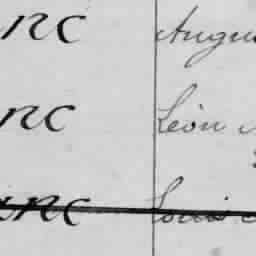 nc Augu
nc Léon
nc Louis